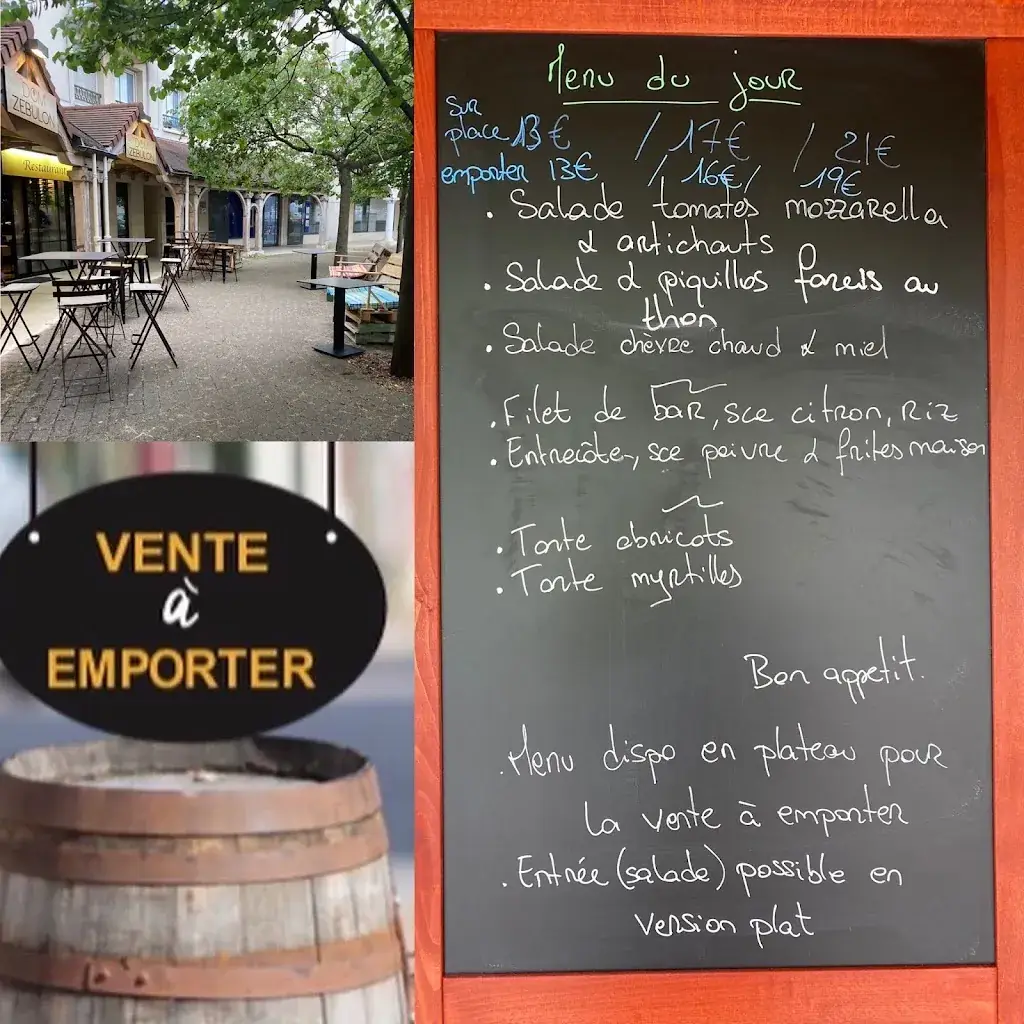 DOM
ZEBULON
ZEBULON
Restaurant
VENTE
à
EMPORTER
Menu du jour
Sur
place 13€ / 17€ / 21€
emporter 13€ / 16€ / 19€
. Salade tomates mozzarella
& artichauts
. Salade & piquillos farcis au
thon
. Salade chèvre chaud & miel
. Filet de bar, sce citron, riz
. Entrecôte, sce poivre & frites maison
. Tarte abricots
. Tarte myrtilles
Bon appetit.
. Menu dispo en plateau pour
la vente à emporter
. Entrée (salade) possible en
version plat